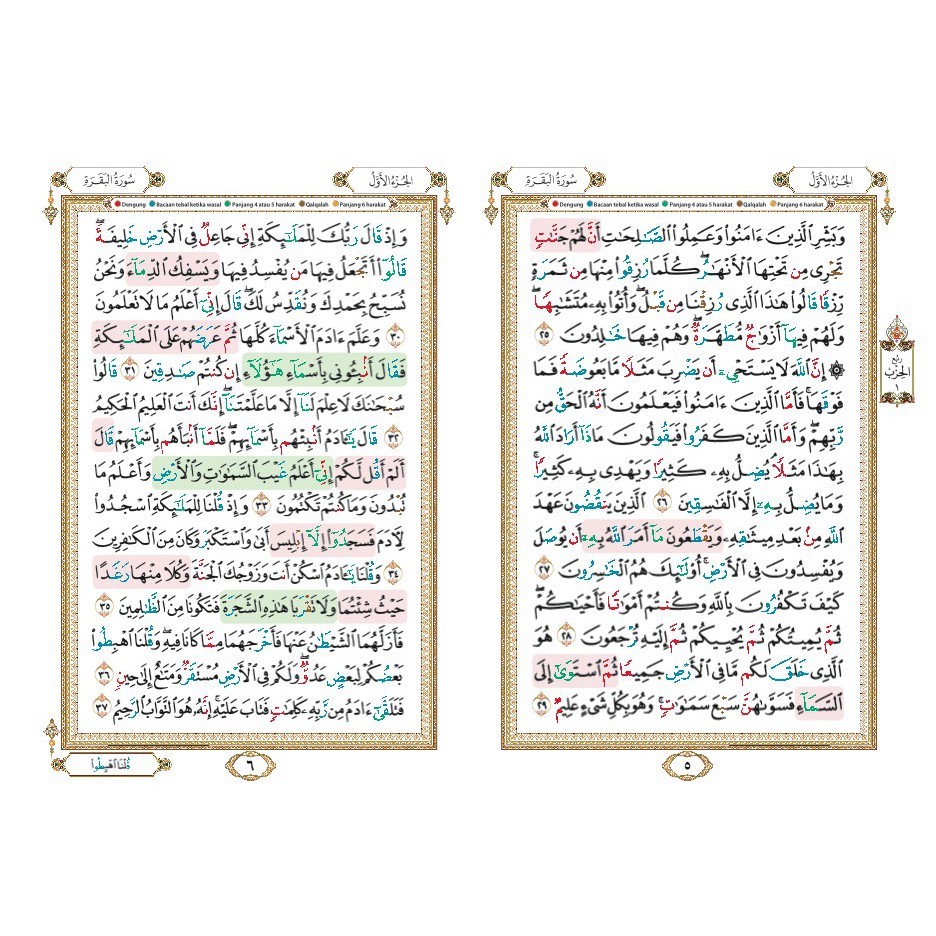 الجُزْءُ الأَوَّلُ
سُورَةُ البَقَرَةِ
Dengung Bacaan tebal ketika wasal Panjang 4 atau 5 harakat Qalqalah Panjang 6 harakat
وَبَشِّرِ ٱلَّذِينَ ءَامَنُوا۟ وَعَمِلُوا۟ ٱلصَّٰلِحَٰتِ أَنَّ لَهُمْ جَنَّٰتٍ
تَجْرِى مِن تَحْتِهَا ٱلْأَنْهَٰرُ ۖ كُلَّمَا رُزِقُوا۟ مِنْهَا مِن ثَمَرَةٍ
رِّزْقًا قَالُوا۟ هَٰذَا ٱلَّذِى رُزِقْنَا مِن قَبْلُ ۖ وَأُتُوا۟ بِهِۦ مُتَشَٰبِهًا ۖ
وَلَهُمْ فِيهَآ أَزْوَٰجٌ مُّطَهَّرَةٌ ۖ وَهُمْ فِيهَا خَٰلِدُونَ ٢٥
۞ إِنَّ ٱللَّهَ لَا يَسْتَحْىِۦٓ أَن يَضْرِبَ مَثَلًا مَّا بَعُوضَةً فَمَا
فَوْقَهَا ۚ فَأَمَّا ٱلَّذِينَ ءَامَنُوا۟ فَيَعْلَمُونَ أَنَّهُ ٱلْحَقُّ مِن
رَّبِّهِمْ ۖ وَأَمَّا ٱلَّذِينَ كَفَرُوا۟ فَيَقُولُونَ مَاذَآ أَرَادَ ٱللَّهُ
بِهَٰذَا مَثَلًا ۘ يُضِلُّ بِهِۦ كَثِيرًا وَيَهْدِى بِهِۦ كَثِيرًا ۚ
وَمَا يُضِلُّ بِهِۦٓ إِلَّا ٱلْفَٰسِقِينَ ٢٦ ٱلَّذِينَ يَنقُضُونَ عَهْدَ
ٱللَّهِ مِنۢ بَعْدِ مِيثَٰقِهِۦ وَيَقْطَعُونَ مَآ أَمَرَ ٱللَّهُ بِهِۦٓ أَن يُوصَلَ
وَيُفْسِدُونَ فِى ٱلْأَرْضِ ۚ أُو۟لَٰٓئِكَ هُمُ ٱلْخَٰسِرُونَ ٢٧
كَيْفَ تَكْفُرُونَ بِٱللَّهِ وَكُنتُمْ أَمْوَٰتًا فَأَحْيَٰكُمْ ۖ
ثُمَّ يُمِيتُكُمْ ثُمَّ يُحْيِيكُمْ ثُمَّ إِلَيْهِ تُرْجَعُونَ ٢٨ هُوَ
ٱلَّذِى خَلَقَ لَكُم مَّا فِى ٱلْأَرْضِ جَمِيعًا ثُمَّ ٱسْتَوَىٰٓ إِلَى
ٱلسَّمَآءِ فَسَوَّىٰهُنَّ سَبْعَ سَمَٰوَٰتٍ ۚ وَهُوَ بِكُلِّ شَىْءٍ عَلِيمٌ ٢٩
رُبْعُ
الحِزْبِ
١
٥
الجُزْءُ الأَوَّلُ
سُورَةُ البَقَرَةِ
Dengung Bacaan tebal ketika wasal Panjang 4 atau 5 harakat Qalqalah Panjang 6 harakat
وَإِذْ قَالَ رَبُّكَ لِلْمَلَٰٓئِكَةِ إِنِّى جَاعِلٌ فِى ٱلْأَرْضِ خَلِيفَةً ۖ
قَالُوٓا۟ أَتَجْعَلُ فِيهَا مَن يُفْسِدُ فِيهَا وَيَسْفِكُ ٱلدِّمَآءَ وَنَحْنُ
نُسَبِّحُ بِحَمْدِكَ وَنُقَدِّسُ لَكَ ۖ قَالَ إِنِّىٓ أَعْلَمُ مَا لَا تَعْلَمُونَ
٣٠ وَعَلَّمَ ءَادَمَ ٱلْأَسْمَآءَ كُلَّهَا ثُمَّ عَرَضَهُمْ عَلَى ٱلْمَلَٰٓئِكَةِ
فَقَالَ أَنۢبِـُٔونِى بِأَسْمَآءِ هَٰٓؤُلَآءِ إِن كُنتُمْ صَٰدِقِينَ ٣١ قَالُوا۟
سُبْحَٰنَكَ لَا عِلْمَ لَنَآ إِلَّا مَا عَلَّمْتَنَآ ۖ إِنَّكَ أَنتَ ٱلْعَلِيمُ ٱلْحَكِيمُ
٣٢ قَالَ يَٰٓـَٔادَمُ أَنۢبِئْهُم بِأَسْمَآئِهِمْ ۖ فَلَمَّآ أَنۢبَأَهُم بِأَسْمَآئِهِمْ قَالَ
أَلَمْ أَقُل لَّكُمْ إِنِّىٓ أَعْلَمُ غَيْبَ ٱلسَّمَٰوَٰتِ وَٱلْأَرْضِ وَأَعْلَمُ مَا
تُبْدُونَ وَمَا كُنتُمْ تَكْتُمُونَ ٣٣ وَإِذْ قُلْنَا لِلْمَلَٰٓئِكَةِ ٱسْجُدُوا۟
لِـَٔادَمَ فَسَجَدُوٓا۟ إِلَّآ إِبْلِيسَ أَبَىٰ وَٱسْتَكْبَرَ وَكَانَ مِنَ ٱلْكَٰفِرِينَ
٣٤ وَقُلْنَا يَٰٓـَٔادَمُ ٱسْكُنْ أَنتَ وَزَوْجُكَ ٱلْجَنَّةَ وَكُلَا مِنْهَا رَغَدًا
حَيْثُ شِئْتُمَا وَلَا تَقْرَبَا هَٰذِهِ ٱلشَّجَرَةَ فَتَكُونَا مِنَ ٱلظَّٰلِمِينَ ٣٥
فَأَزَلَّهُمَا ٱلشَّيْطَٰنُ عَنْهَا فَأَخْرَجَهُمَا مِمَّا كَانَا فِيهِ ۖ وَقُلْنَا ٱهْبِطُوا۟
بَعْضُكُمْ لِبَعْضٍ عَدُوٌّ ۖ وَلَكُمْ فِى ٱلْأَرْضِ مُسْتَقَرٌّ وَمَتَٰعٌ إِلَىٰ حِينٍ ٣٦
فَتَلَقَّىٰٓ ءَادَمُ مِن رَّبِّهِۦ كَلِمَٰتٍ فَتَابَ عَلَيْهِ ۚ إِنَّهُۥ هُوَ ٱلتَّوَّابُ ٱلرَّحِيمُ ٣٧
قُلْنَا ٱهْبِطُوا۟
٦